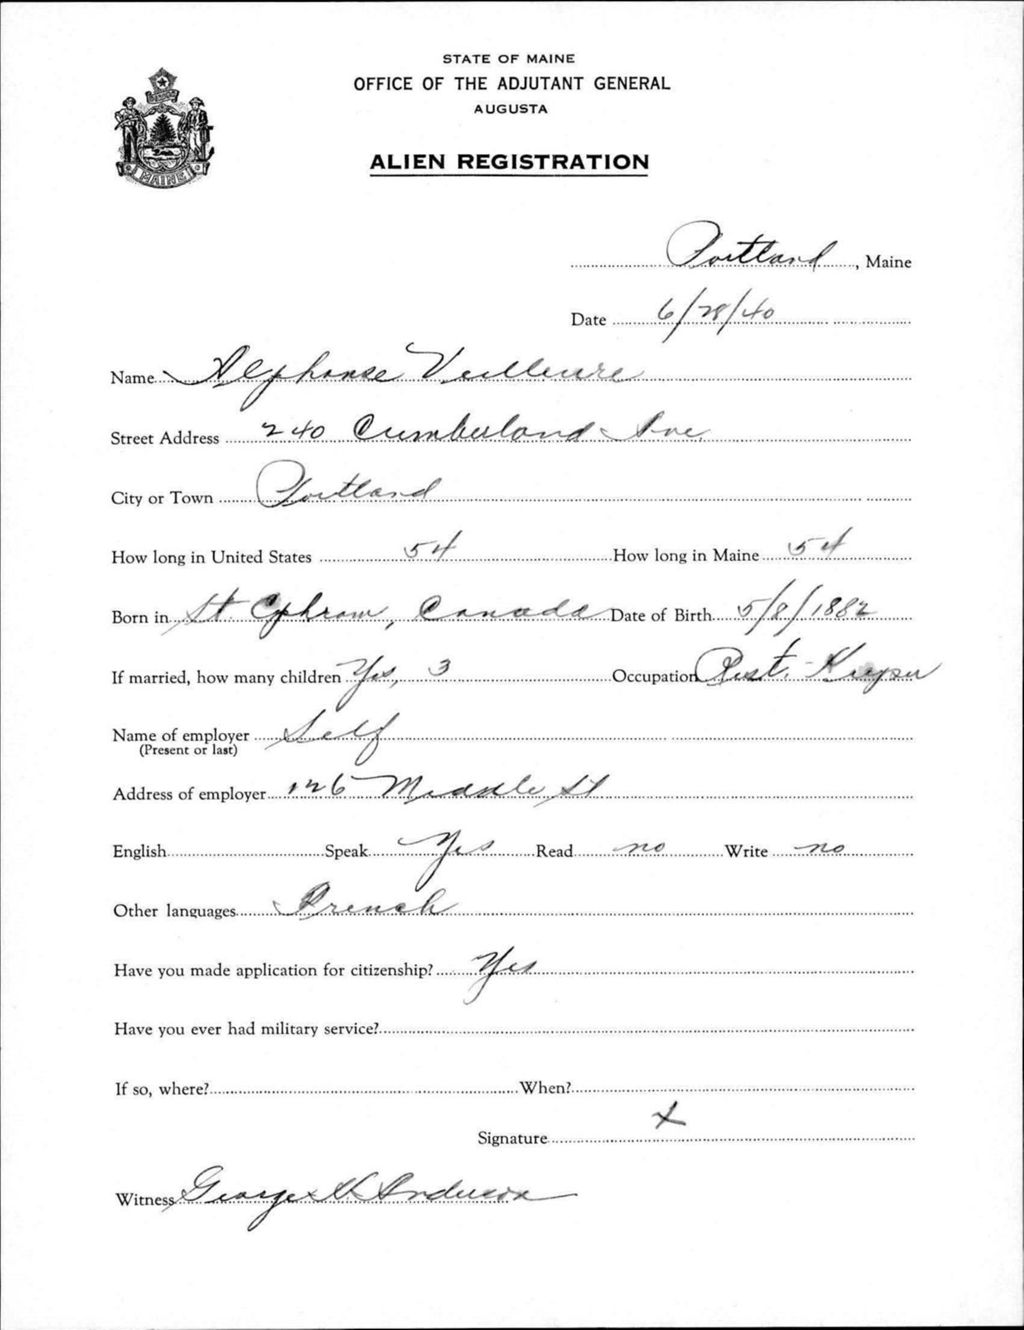 STATE OF MAINE
OFFICE OF THE ADJUTANT GENERAL
AUGUSTA
ALIEN REGISTRATION
MAINE
Portland, Maine
Date 6/28/40
Name Alphonse Veilleure
Street Address 240 Cumberland Ave.
City or Town Portland
How long in United States 54 How long in Maine 54
Born in St. Ephrom, Canada Date of Birth 5/8/1882
If married, how many children Yes, 3 Occupation Rest. Keeper
Name of employer Self
(Present or last)
Address of employer 126 Middle St
English Speak Yes Read no Write no
Other languages French
Have you made application for citizenship? Yes
Have you ever had military service?
If so, where? When?
Signature X
Witness George N Anderson